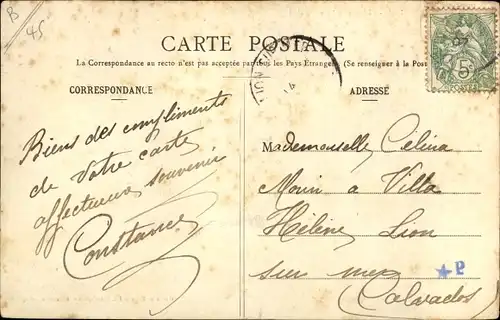 B
45
CARTE POSTALE
La Correspondance au recto n'est pas acceptée par tous les Pays Étrangers (Se renseigner à la Poste
CORRESPONDANCE
ADRESSE
Biens des compliments
de Votre carte
affectueux souvenir
Constance
Mademoiselle Célina
Morin a Villa
Hélène Lion
sur mer
(Calvados)
5
14
P